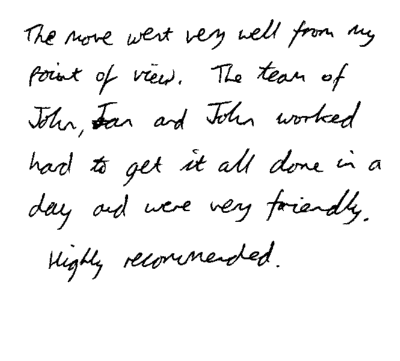 The move went very well from my
point of view. The team of
John, Ian and John worked
hard to get it all done in a
day and were very friendly.
Highly recommended.